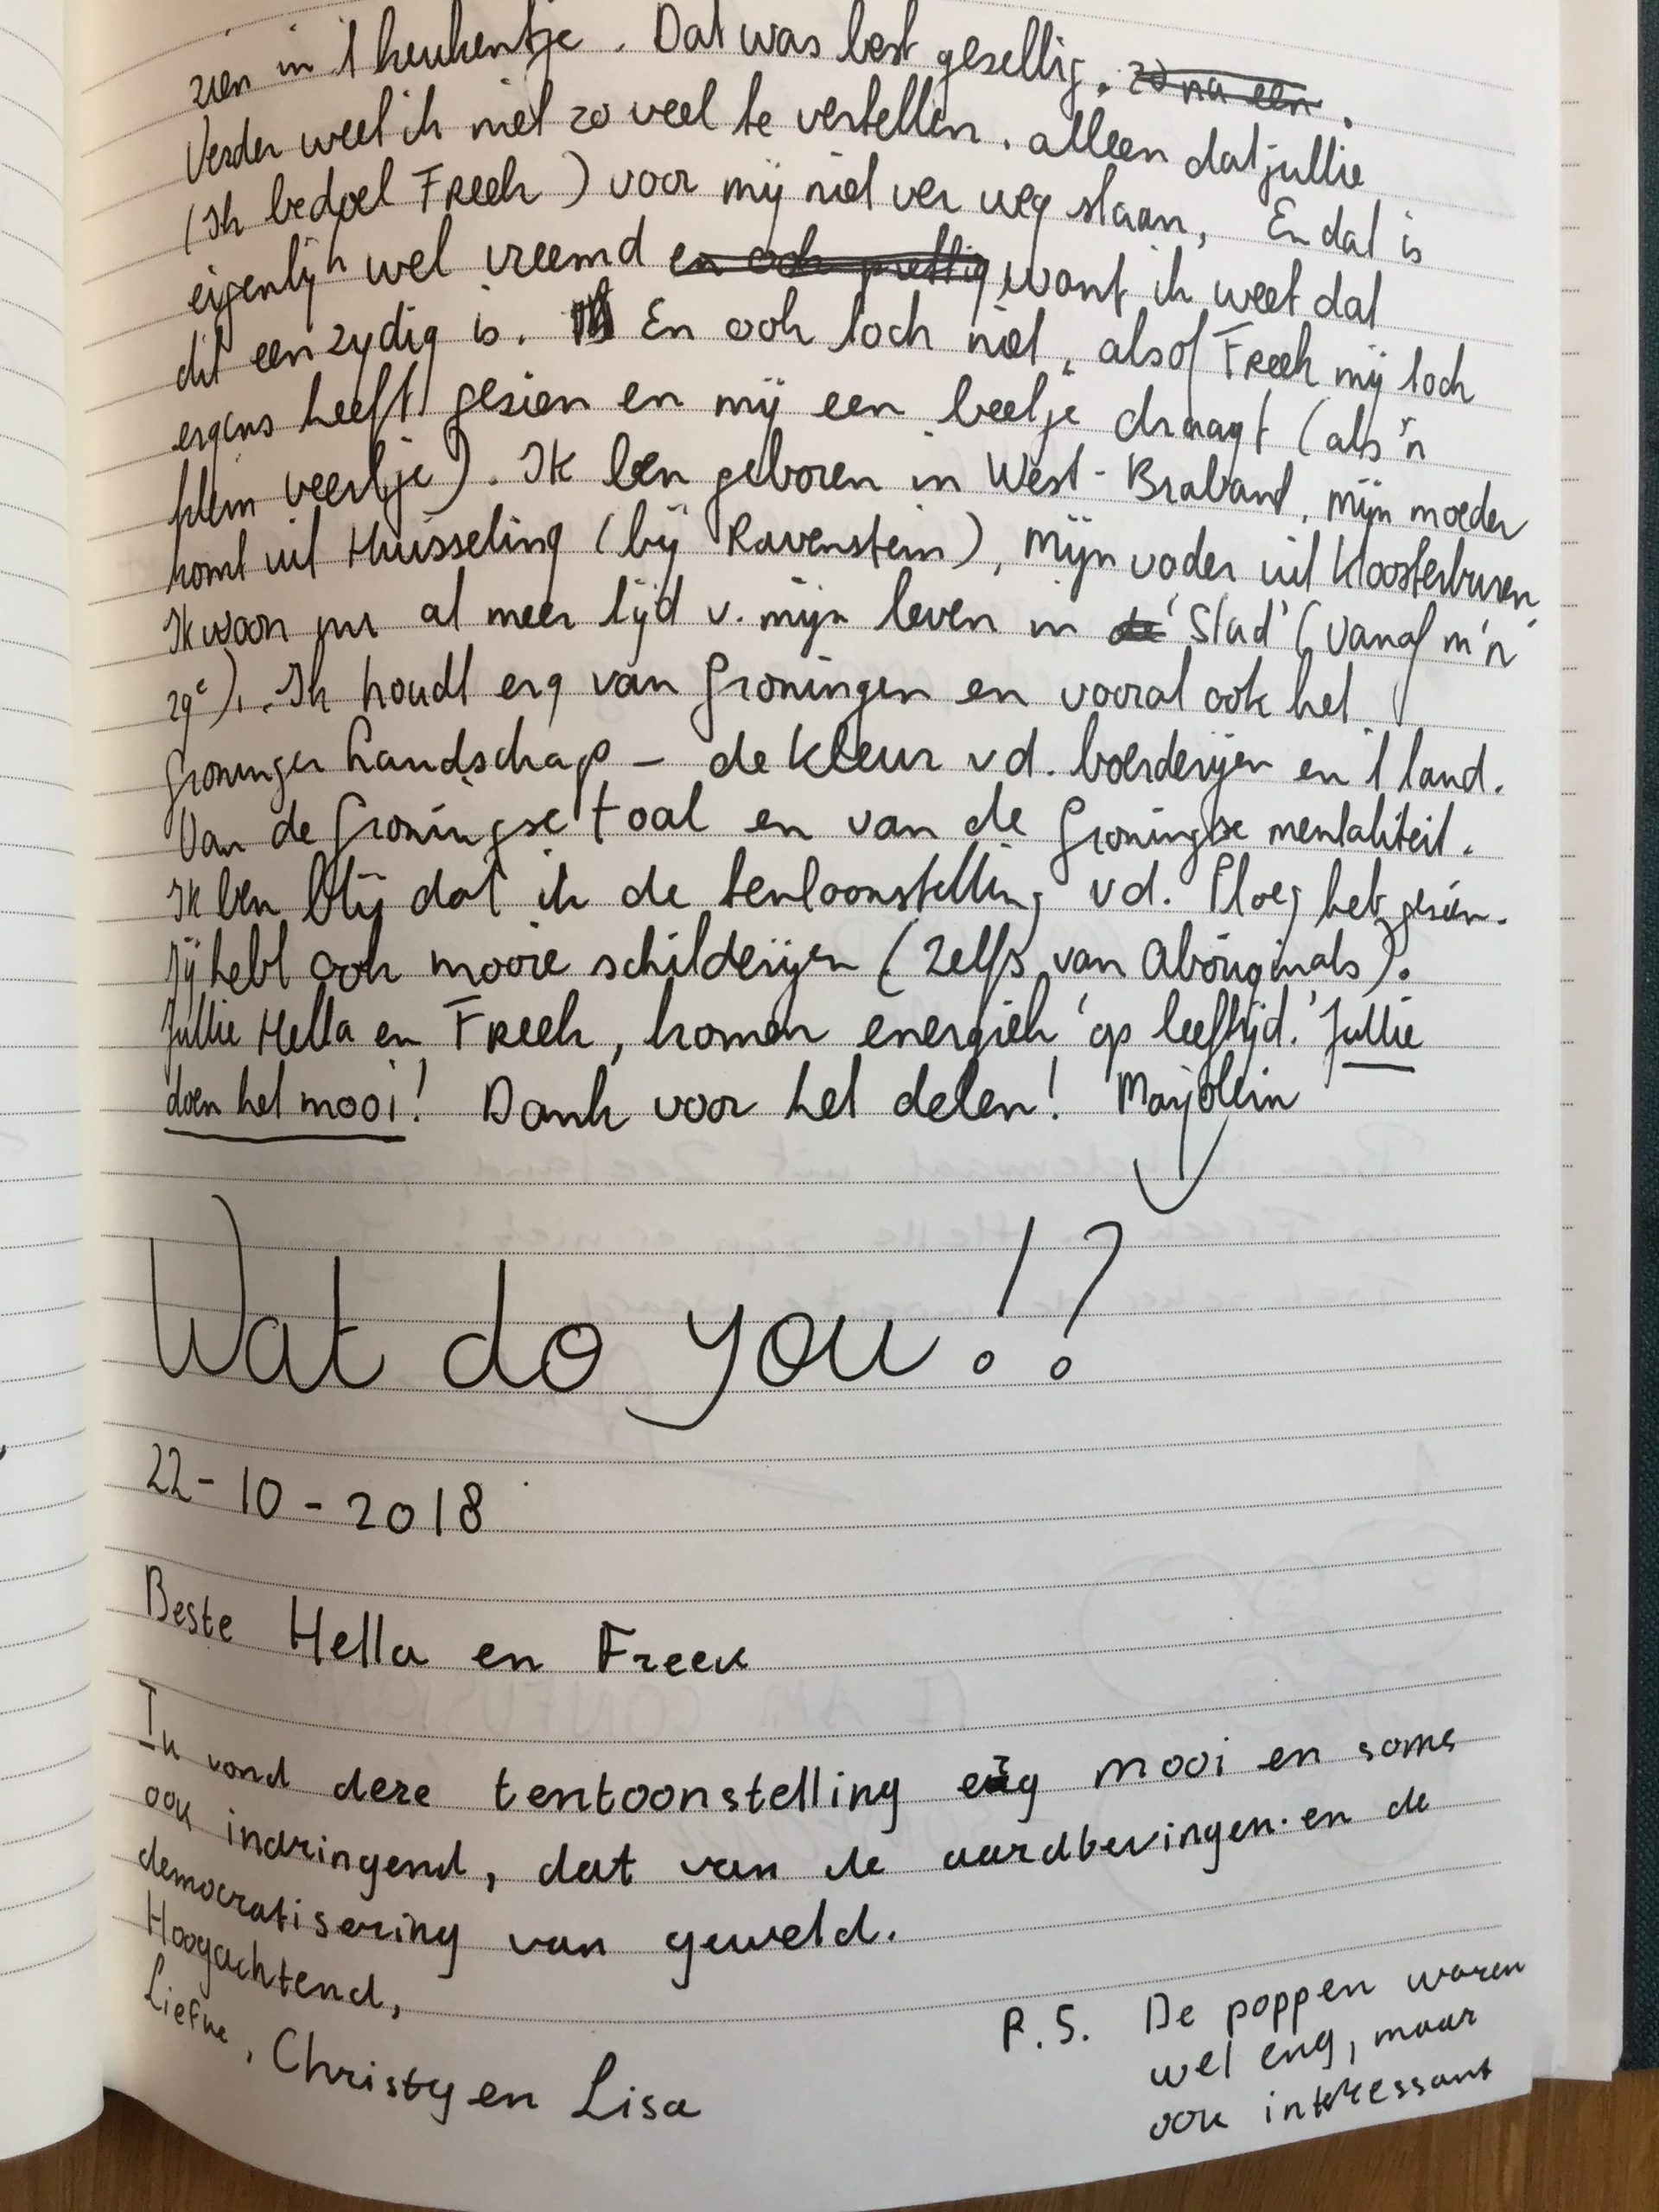 zien in 't keukentje. Dat was best gezellig. zo na een.
Verder weet ik niet zo veel te vertellen. alleen dat jullie
(Ik bedoel Freek) voor mij niet ver weg staan, En dat is
eigenlijk wel vreemd en ook prettig, want ik weet dat
dit eenzydig is. En ook toch niet, alsof Freek mij toch
ergens heeft gezien en mij een beetje draagt (als 'n
klein veertje). Ik ben geboren in West-Braband, mijn moeder
komt uit Huisseling (bij Ravenstein), mijn vader uit Kloosterburen
Ik woon nu al meer tijd v. mijn leven in de 'Stad' (vanaf m'n
29e). Ik houdt erg van Groningen en vooral ook het
Groninger Landschap - de kleur vd. boerderijen en 't land.
Van de Groningse taal en van de Groningse mentaliteit.
Ik ben blij dat ik de tentoonstelling vd. Ploeg heb gezien.
Jij hebt ook mooie schilderijen (zelfs van Aboriginals).
Jullie Hella en Freek, komen energiek 'op leeftijd.' Jullie
doen het mooi! Dank voor het delen! Marjolein
Wat do you!?
22-10-2018
Beste Hella en Freek
Ik vond deze tentoonstelling erg mooi en soms
ook indringend, dat van de aardbevingen en de
democratisering van geweld.
Hoogachtend,
Liefke, Christy en Lisa
P.S. De poppen waren
wel eng, maar
ook interessant